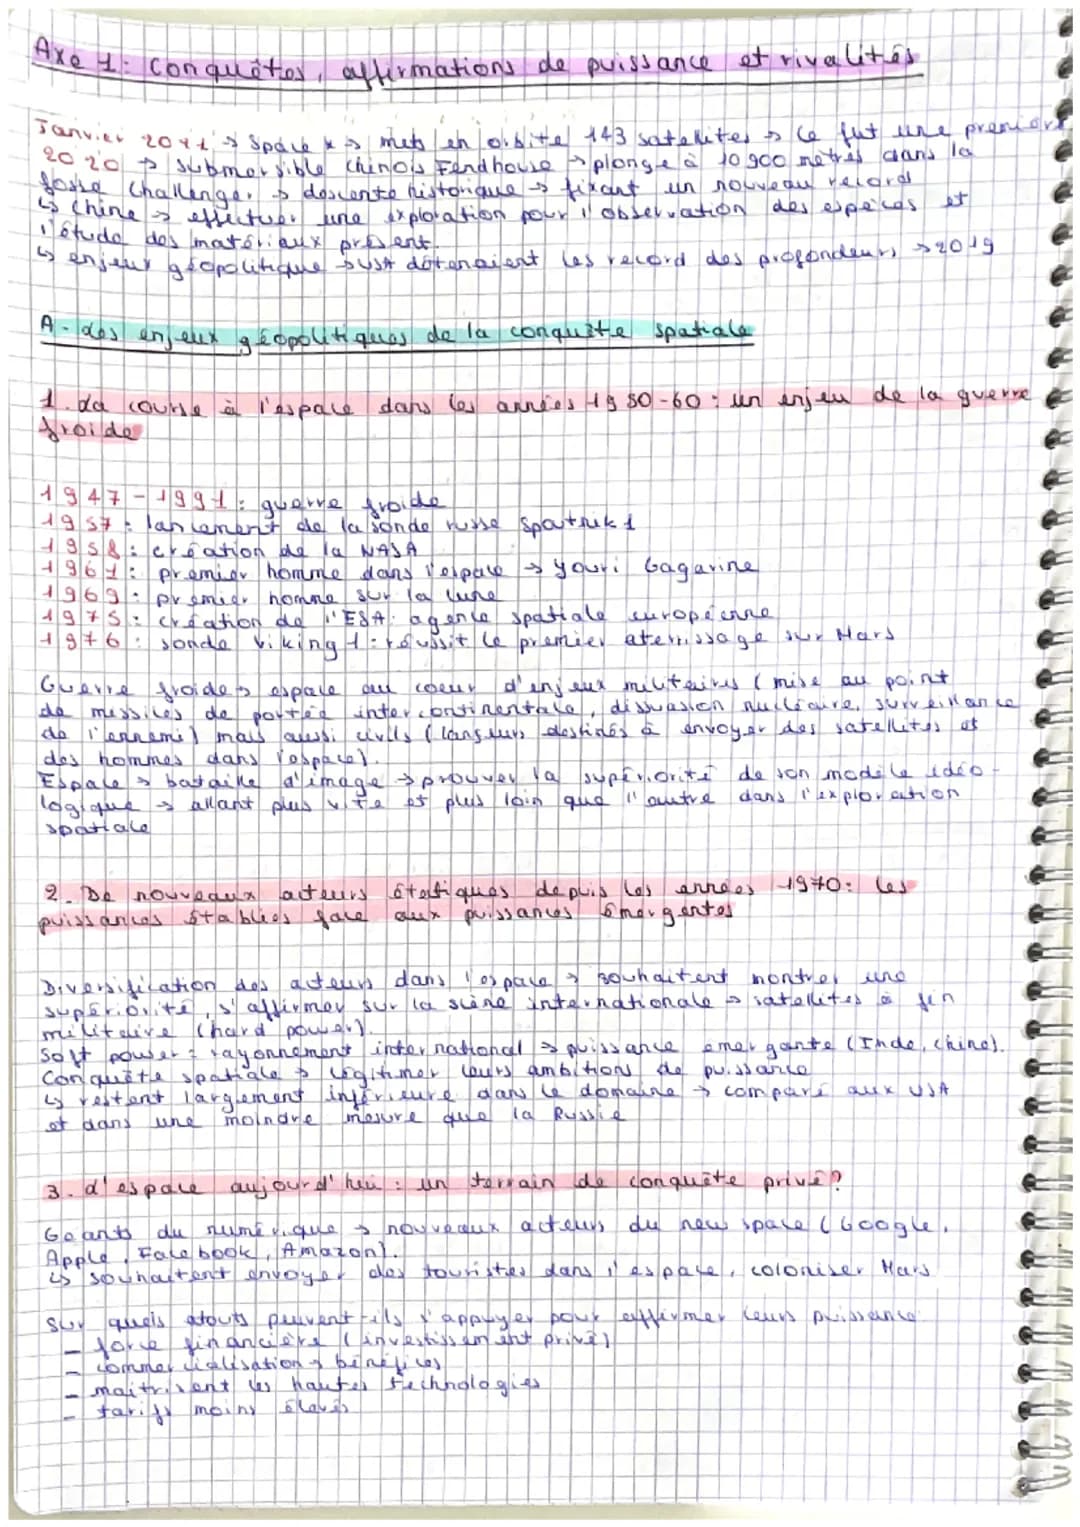 Axe 1: Conquêtes, affirmations de puissance et rivalités
Janvier 2021 → Space x → mets en orbite 143 satelites → ce fut une première
2020 → submersible chinois Fendhouse → plonge à 10 900 mètres dans la
fosse Challenger → descente historique → fixant un nouveau record
↳ Chine → effectuer une exploration pour l'observation des espèces et
l'étude des matériaux présent.
↳ enjeux géopolitique → USA détenaient les record des profondeurs → 2019
A - Les enjeux géopolitiques de la conquête spatiale
1. La course à l'espace dans les années 1950-60 : un enjeu de la guerre
froide
1947 - 1991 : guerre froide
1957 : lancement de la sonde russe Spoutnik 1
1958 : création de la NASA
1961 : premier homme dans l'espace → Youri Gagarine
1969 : premier homme sur la lune
1975 : création de l'ESA : agence spatiale européenne
1976 : sonde Viking 1 : réussit le premier aterrissage sur Mars
Guerre froide → espace au coeur d'enjeux militaires (mise au point
de missiles de portée intercontinentale, dissuasion nucléaire, surveillance
de l'ennemi) mais aussi civils (lanceurs destinés à envoyer des satellites et
des hommes dans l'espace).
Espace → bataille d'image → prouver la supériorité de son modèle idéo-
logique → allant plus vite et plus loin que l'autre dans l'exploration
spatiale
2. De nouveaux acteurs étatiques depuis les années 1970 : les
puissances établies face aux puissances émergentes
Diversification des acteurs dans l'espace → souhaitent montrer une
supériorité, s'affirmer sur la scène internationale → satellites à fin
militaire (hard power).
Soft power : rayonnement international → puissance émergante (Inde, Chine).
Conquête spatiale → légitimer leurs ambitions de puissance
↳ restent largement inférieure dans le domaine → comparé aux USA
et dans une moindre mesure que la Russie
3. L'espace aujourd'hui : un terrain de conquête privé ?
Géants du numérique → nouveaux acteurs du new space (Google,
Apple, Facebook, Amazon).
↳ souhaitent envoyer des touristes dans l'espace, coloniser Mars
Sur quels atouts peuvent-ils s'appuyer pour affirmer leurs puissance
- force financière (investissement privé)
- commercialisation → bénéfices
- maitrisent les hautes technologies
- tarifs moins élevés